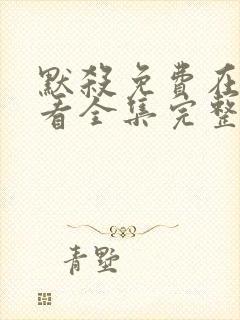 默殺免費在
看全集完整
青墅